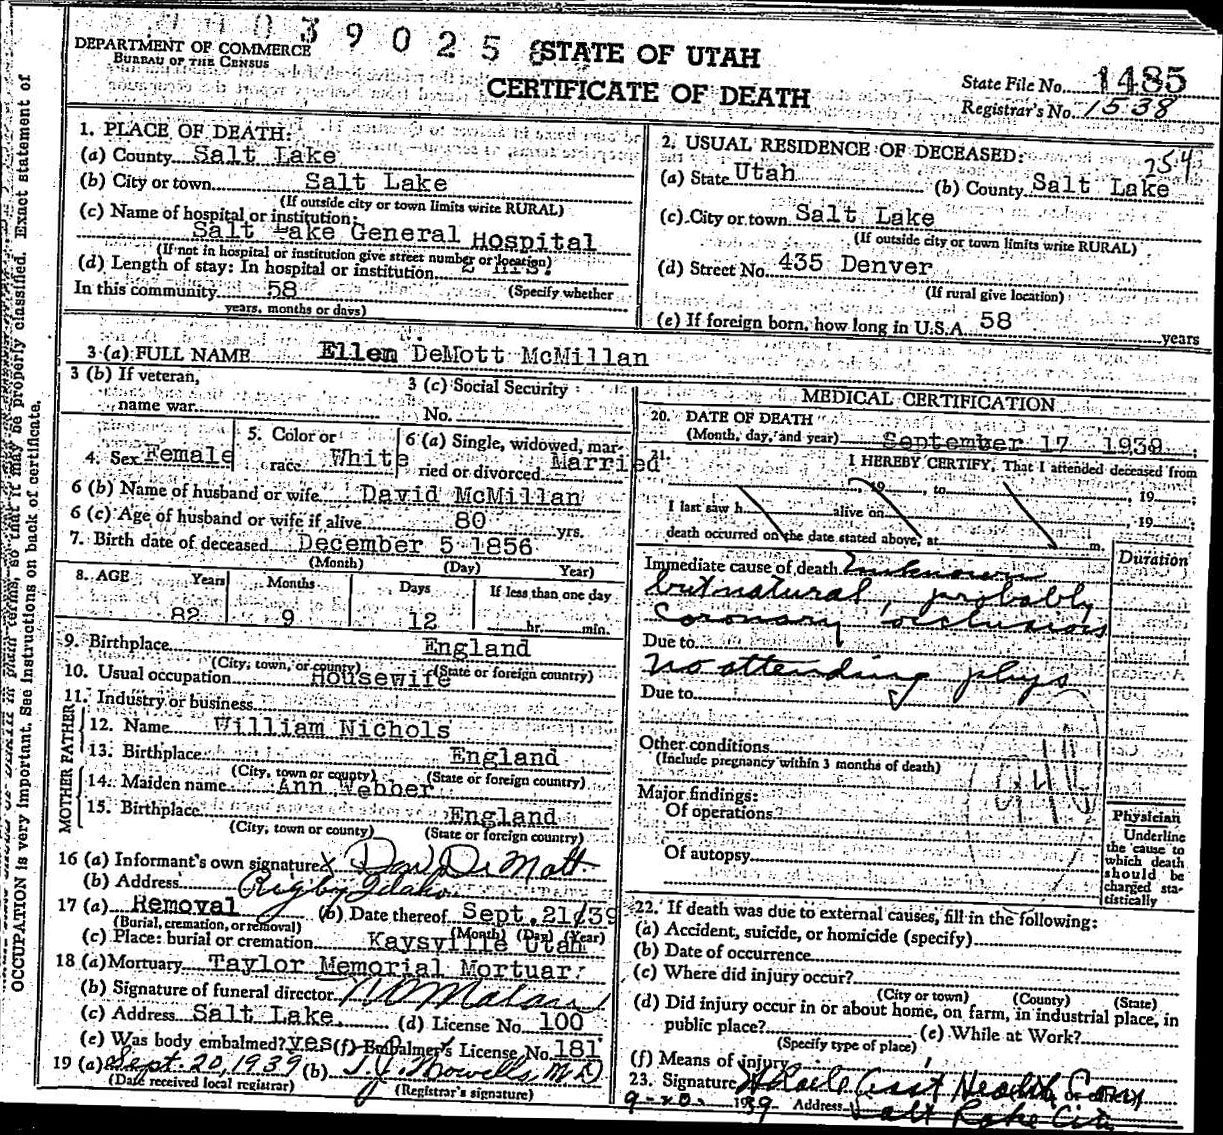 39025
DEPARTMENT OF COMMERCE
BUREAU OF THE CENSUS
STATE OF UTAH
CERTIFICATE OF DEATH
State File No. 1485
Registrar's No. 1538
1. PLACE OF DEATH:
(a) County Salt Lake
(b) City or town Salt Lake
(If outside city or town limits write RURAL)
(c) Name of hospital or institution:
Salt Lake General Hospital
(If not in hospital or institution give street number or location)
(d) Length of stay: In hospital or institution 2 hrs.
In this community 58 (Specify whether
years, months or days)
2. USUAL RESIDENCE OF DECEASED: 254
(a) State Utah (b) County Salt Lake
(c) City or town Salt Lake
(If outside city or town limits write RURAL)
(d) Street No. 435 Denver
(If rural give location)
(e) If foreign born, how long in U.S.A. 58 years
3 (a) FULL NAME Ellen DeMott McMillan
3 (b) If veteran,
name war
3 (c) Social Security
No.
4. Sex Female
5. Color or
race White
6 (a) Single, widowed, mar-
ried or divorced Married
6 (b) Name of husband or wife David McMillan
6 (c) Age of husband or wife if alive 80 yrs.
7. Birth date of deceased December 5 1856
(Month) (Day) Year)
8. AGE Years Months Days If less than one day
82 9 12 hr. min.
9. Birthplace England
(City, town, or county) (State or foreign country)
10. Usual occupation Housewife
11. Industry or business
MOTHER FATHER
12. Name William Nichols
13. Birthplace England
(City, town or county) (State or foreign country)
14. Maiden name Ann Webber
15. Birthplace England
(City, town or county) (State or foreign country)
16 (a) Informant's own signature X Dave De Mott
(b) Address Rigby Idaho
17 (a) Removal (b) Date thereof Sept. 21/39
(Burial, cremation, or removal) (Month) (Day) (Year)
(c) Place: burial or cremation Kaysville Utah
18 (a) Mortuary Taylor Memorial Mortuar
(b) Signature of funeral director
(c) Address Salt Lake, (d) License No. 100
(e) Was body embalmed? yes (f) Embalmer's License No. 181
19 (a) Sept. 20, 1939 (b) T.J. Howells M D
(Date received local registrar) (Registrar's signature)
MEDICAL CERTIFICATION
20. DATE OF DEATH
(Month, day, and year) September 17 1939
21. I HEREBY CERTIFY, That I attended deceased from
, 19 , to , 19 ;
I last saw h alive on , 19 ;
death occurred on the date stated above, at m.
Duration
Immediate cause of death Unknown
but natural, probably
Coronary occlusion
Due to
no attending phys
Due to
Other conditions
(Include pregnancy within 3 months of death)
94b
Major findings:
Of operations
Of autopsy
Physician
Underline
the cause to
which death
should be
charged sta-
tistically
22. If death was due to external causes, fill in the following:
(a) Accident, suicide, or homicide (specify)
(b) Date of occurrence
(c) Where did injury occur?
(City or town) (County) (State)
(d) Did injury occur in or about home, on farm, in industrial place, in
public place? (e) While at Work?
(Specify type of place)
(f) Means of injury
23. Signature Health Com
9-20- 1939 Address Salt Lake City
OCCUPATION is very important. See Instructions on back of certificate.
so that it may be properly classified. Exact statement of